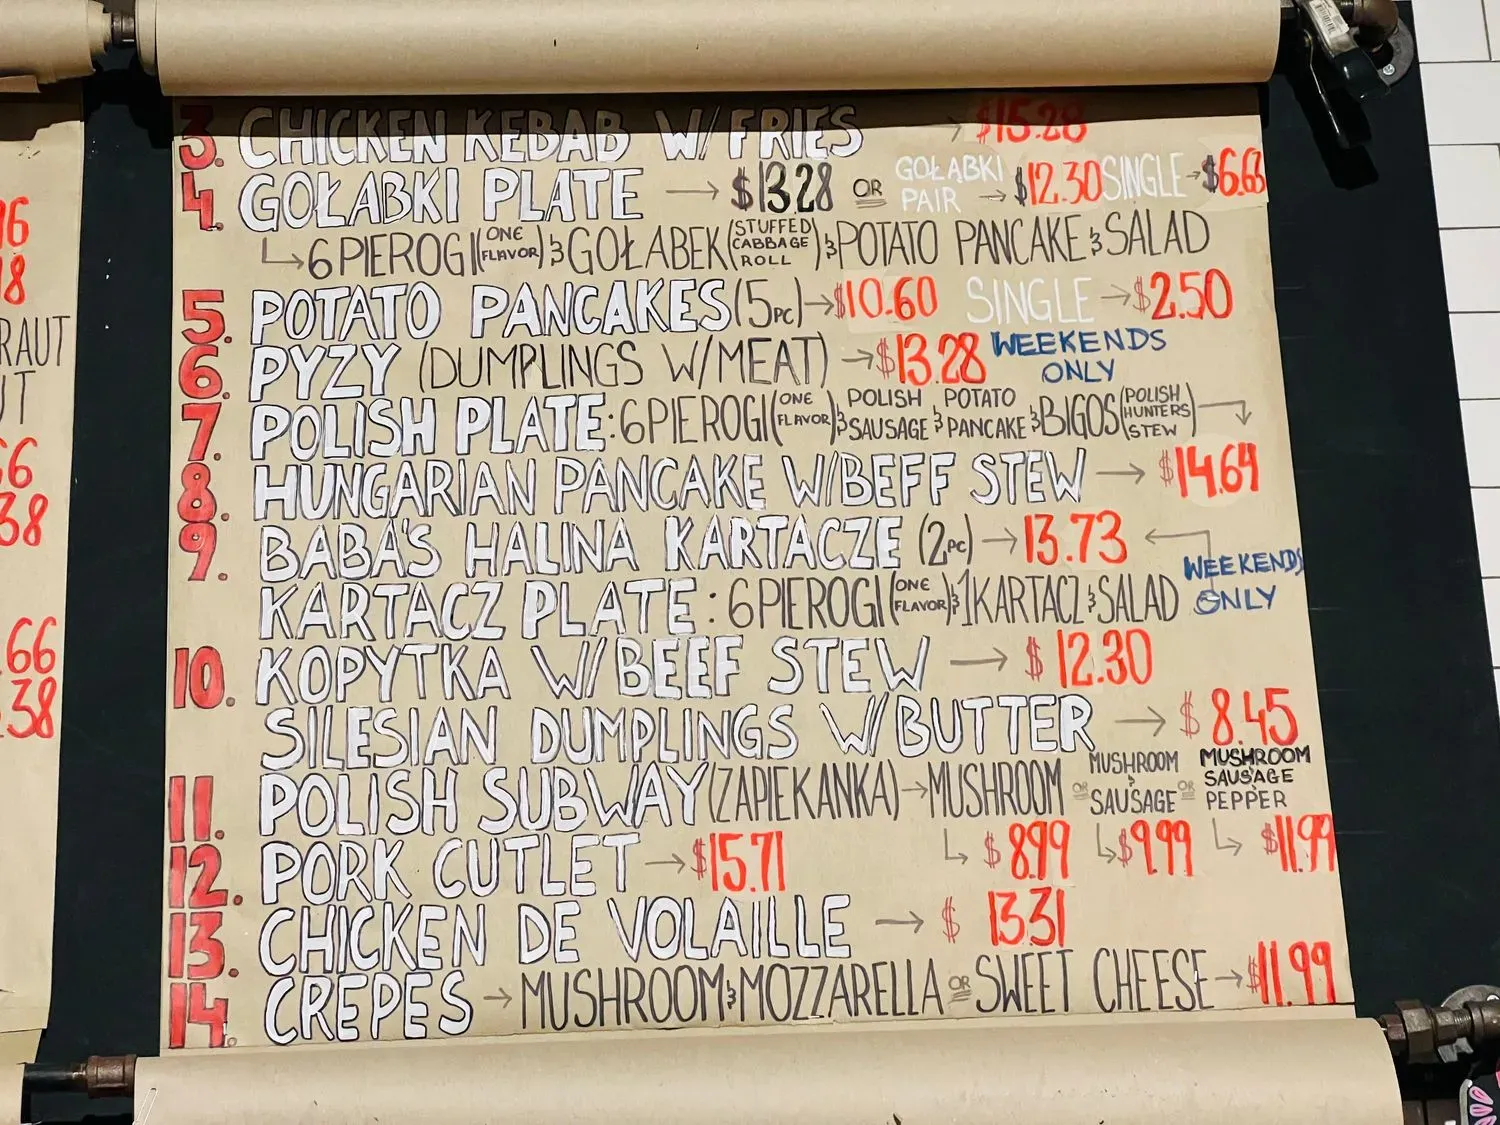 3. CHICKEN KEBAB W/ FRIES → $15.28
4. GOŁĄBKI PLATE → $13.28 OR GOŁĄBKI PAIR → $12.30 SINGLE → $6.63
6 PIEROGI (ONE FLAVOR) & GOŁABEK (STUFFED CABBAGE ROLL) & POTATO PANCAKE & SALAD
5. POTATO PANCAKES (5PC) → $10.60 SINGLE → $2.50
6. PYZY (DUMPLINGS W/MEAT) → $13.28 WEEKENDS ONLY
7. POLISH PLATE: 6 PIEROGI (ONE FLAVOR) & POLISH SAUSAGE & POTATO PANCAKE & BIGOS (POLISH HUNTERS STEW)
8. HUNGARIAN PANCAKE W/BEFF STEW → $14.64
9. BABA'S HALINA KARTACZE (2PC) → 13.73
KARTACZ PLATE: 6 PIEROGI (ONE FLAVOR) & 1 KARTACZ & SALAD WEEKENDS ONLY
10. KOPYTKA W/BEEF STEW → $12.30
SILESIAN DUMPLINGS W/BUTTER → $8.45
11. POLISH SUBWAY (ZAPIEKANKA) → MUSHROOM OR MUSHROOM & SAUSAGE OR MUSHROOM SAUSAGE PEPPER
$8.99 $9.99 $11.99
12. PORK CUTLET → $15.71
13. CHICKEN DE VOLAILLE → $13.31
14. CREPES → MUSHROOM & MOZZARELLA OR SWEET CHEESE → $11.99
16
18
RAUT
UT
66
38
.66
.38